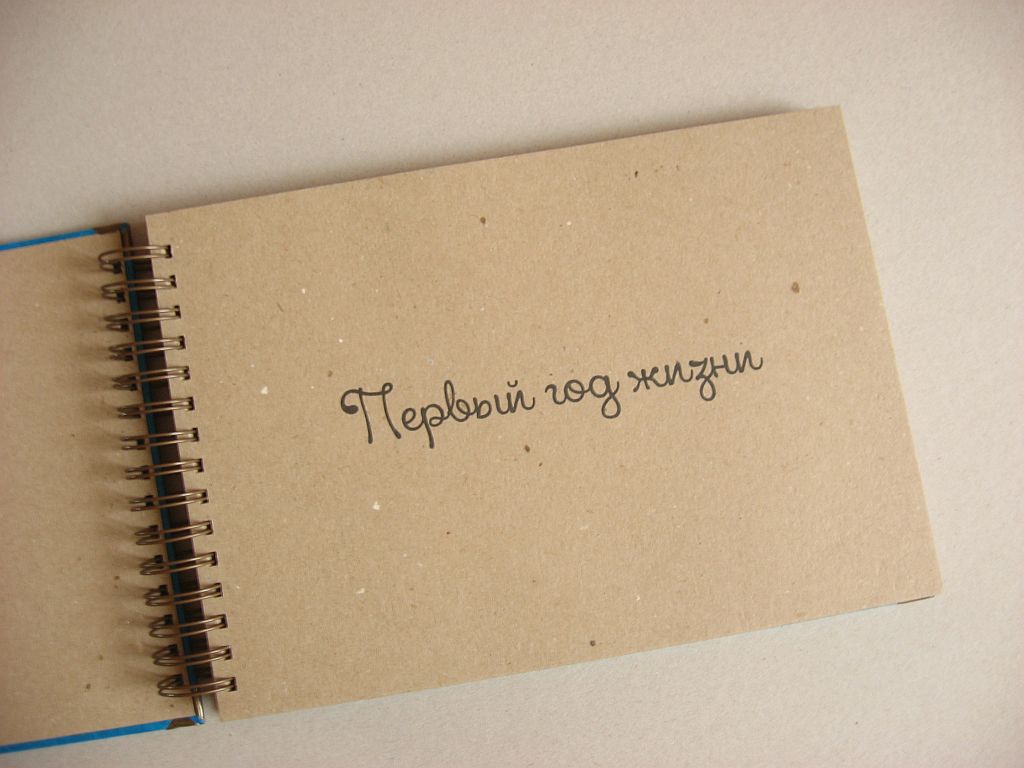 Первый год жизни